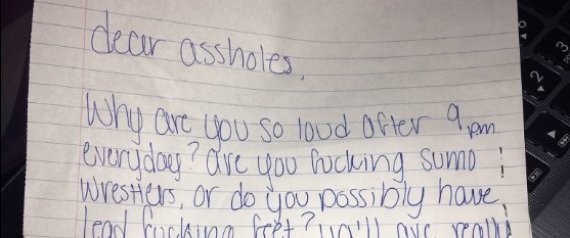 dear assholes,
Why are you so loud after 9pm
everyday? are you fucking sumo
wrestlers, or do you possibly have
lead fucking feet? ya'll are really